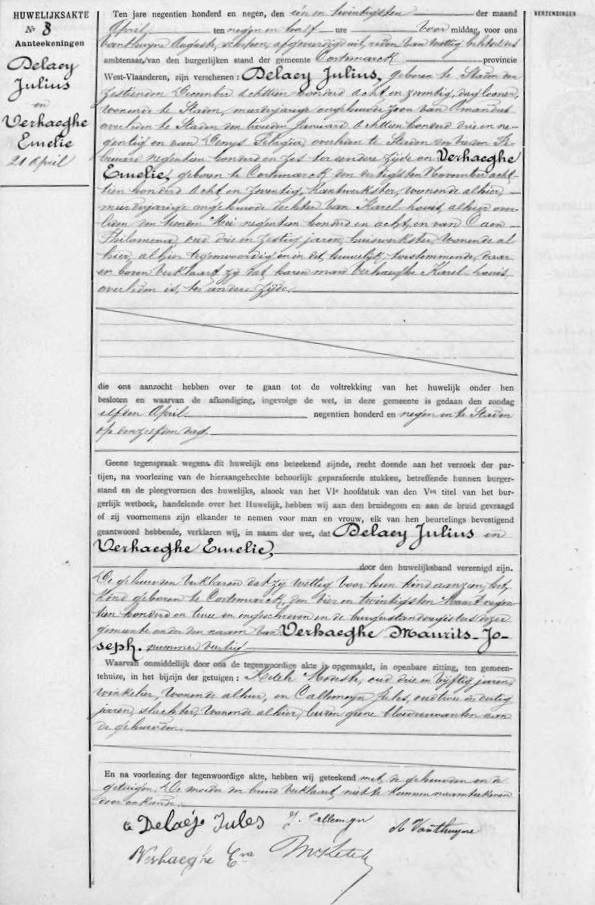 HUWELIJKSAKTE
Nr 8
Aanteekeningen
Delaey
Julius
en
Verhaeghe
Emelie
21 April
VERZENDINGEN
Ten jare negentien honderd en negen, den één en twintigsten der maand
April ten negen en half ure voor middag, voor ons
Vanthuyne August, schepen, afgevaardigd uit reden van wettig beletsel des
ambtenaar van den burgerlijken stand der gemeente Cortemarck provincie
West-Vlaanderen, zijn verschenen: Delaey Julius, geboren te Staden den
zestienden December achttien honderd acht en zeventig, daglooner,
wonende te Staden, meerderjarige ongehuwde zoon van Amandus
overleden te Staden den tweeden Januari achttien honderd drie en ne-
gentig en van Denys Pelagia, overleden te Staden den Fe-
bruari negentien honderd en zes ter eendere zijde en Verhaeghe
Emelie, geboren te Cortemarck den dertigsten November acht-
tien honderd acht en zeventig, kantwerkster, wonende alhier,
meerderjarige ongehuwde dochter van Karel Louis, alhier over-
leden den Mei negentien honderd en acht, en van Daen
Philomena, oud drie en zestig jaren, huiswerkster, wonende al-
hier, alhier tegenwoordig en in dit huwelijk toestemmende, daar
en boven verklaart zij dat haren man Verhaeghe Karel Louis
overleden is, ter andere zijde.
die ons aanzocht hebben over te gaan tot de voltrekking van het huwelijk onder hen
besloten en waarvan de afkondiging, ingevolge de wet, in deze gemeente is gedaan den zondag
elfden April negentien honderd en negen en te Staden
op denzelfden dag.
Geene tegenspraak wegens dit huwelijk ons beteekend zijnde, recht doende aan het verzoek der par-
tijen, na voorlezing der hieraangehechte behoorlijk geparafeerde stukken, betreffende hunnen burger-
stand en de pleegvormen des huwelijks, alsook van het VIe hoofdstuk van den Ven titel van het bur-
gerlijk wetboek, handelende over het Huwelijk, hebben wij aan den bruidegom en aan de bruid gevraagd
of zij voornemens zijn elkander te nemen voor man en vrouw, elk van hen beurtelings bevestigend
geantwoord hebbende, verklaren wij, in naam der wet, dat Delaey Julius en
Verhaeghe Emelie,
door den huwelijksband vereenigd zijn.
De gehuwden verklaren dat zij wettig voor hun kind aanzien, het
kind geboren te Cortemarck, den vier en twintigsten Maart negen-
tien honderd en twee en ingeschreven in de burgerstandregisters dezer
gemeente onder den naam van Verhaeghe Maurits-Jo-
seph. nummer veertig.
Waarvan onmiddellijk door ons de tegenwoordige akte is opgemaakt, in openbare zitting, ten gemeen-
tehuize, in het bijzijn der getuigen: Ketele Modeste, oud drie en vijftig jaren,
winkelier, wonende alhier, en Callemeyn Jules, oud twee en dertig
jaren, slachter, wonende alhier, beiden geene bloedverwanten aan
de gehuwden.
En na voorlezing der tegenwoordige akte, hebben wij geteekend met de gehuwden en de
getuigen. De moeder der bruid verklaart niet te kunnen naamteekenen
door onkunde.
Delaeÿ Jules J. Callemeyn A. Vanthuyne
Verhaeghe Ketele